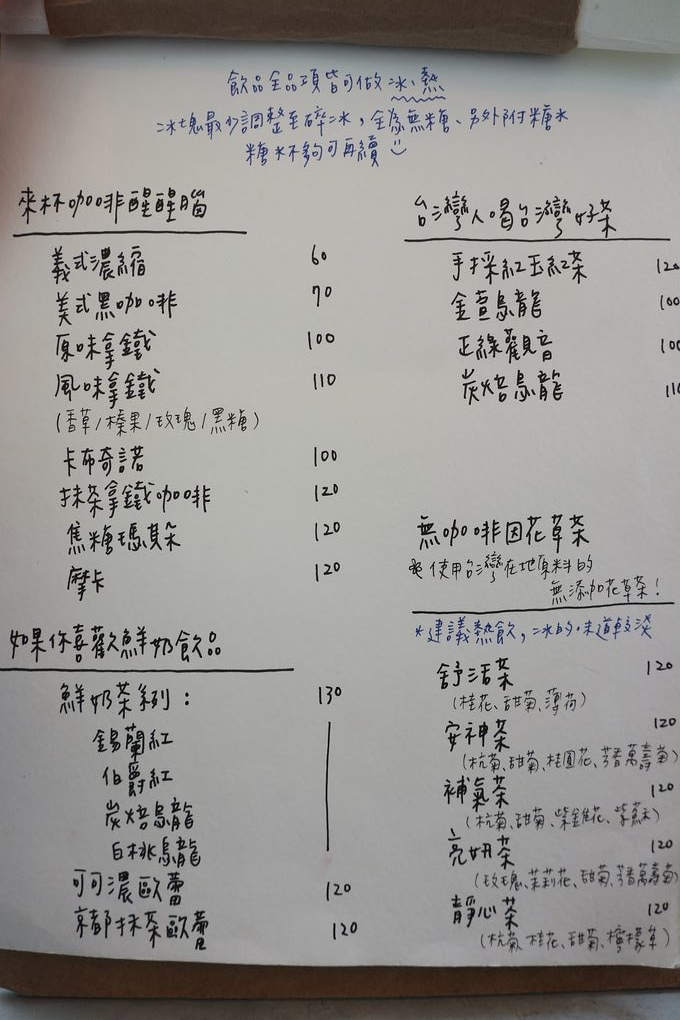 飲品全品項皆可做冰、熱
冰塊最少調整至碎冰，全為無糖、另外附糖水
糖水不夠可再續
來杯咖啡醒醒腦
義式濃縮 60
美式黑咖啡 70
原味拿鐵 100
風味拿鐵 110
(香草/榛果/玫瑰/黑糖)
卡布奇諾 100
抹茶拿鐵咖啡 120
焦糖瑪其朵 120
摩卡 120
如果你喜歡鮮奶飲品
鮮奶茶系列： 130
錫蘭紅
伯爵紅
炭焙烏龍
白桃烏龍
可可濃歐蕾 120
京都抹茶歐蕾 120
台灣人喝台灣好茶
手採紅玉紅茶 120
金萱烏龍 100
正線觀音 100
炭焙烏龍 110
無咖啡因花草茶
*使用台灣在地原料的
無添加花草茶！
*建議熱飲，冰的味道較淺
舒活茶 120
(桂花、甜菊、薄荷)
安神茶 120
(杭菊、甜菊、桂圓花、芳香萬壽菊)
補氣茶 120
(杭菊、甜菊、紫錐花、紫蘇)
亮妍茶 120
(玫瑰、茉莉花、甜菊、芳香萬壽菊)
靜心茶 120
(杭菊、桂花、甜菊、檸檬草)